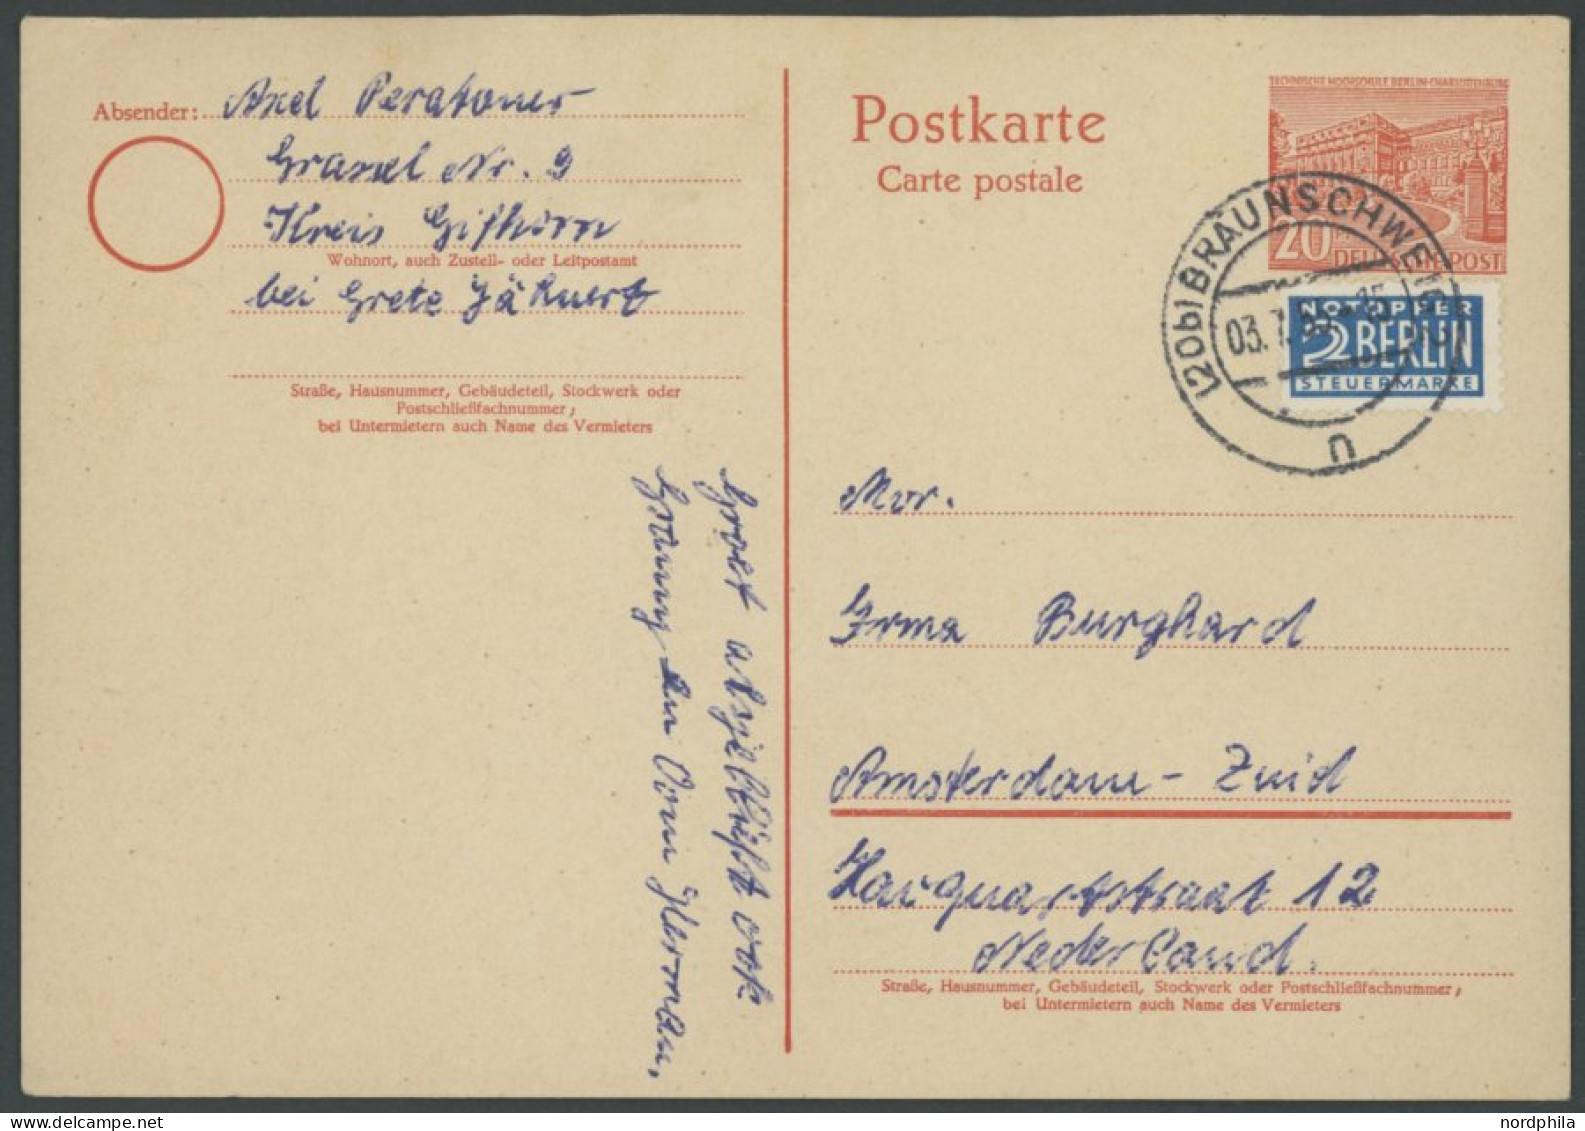 Absender: Axel Peratoner
Grassel Nr. 9
Kreis Gifhorn
Wohnort, auch Zustell- oder Leitpostamt
bei Grete Jäkuert
Straße, Hausnummer, Gebäudeteil, Stockwerk oder
Postschließfachnummer;
bei Untermietern auch Name des Vermieters
Groet alsjeblieft ook
Hermann.
Postkarte
Carte postale
TECHNISCHE HOCHSCHULE BERLIN-CHARLOTTENBURG
20 DEUTSCHE POST
(20b) BRAUNSCHWEIG
03.
n
NOTOPFER
2 BERLIN
STEUERMARKE
Mvr.
Irma Burghard
Amsterdam - Zuid
Haiquartstraat 12
Nederland.
Straße, Hausnummer, Gebäudeteil, Stockwerk oder Postschließfachnummer;
bei Untermietern auch Name des Vermieters
nordphila